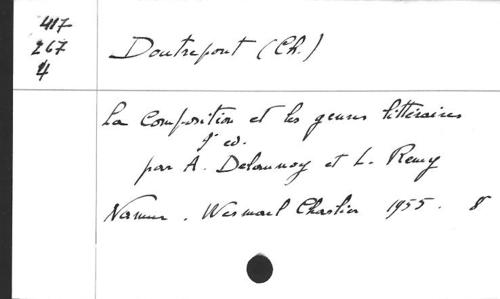 417
267
4
Doutrepont (Ch.)
La Composition et les genres littéraires
9e éd.
par A. Delaunoy et L. Remy
Namur. Wesmael Charlier 1955. 8